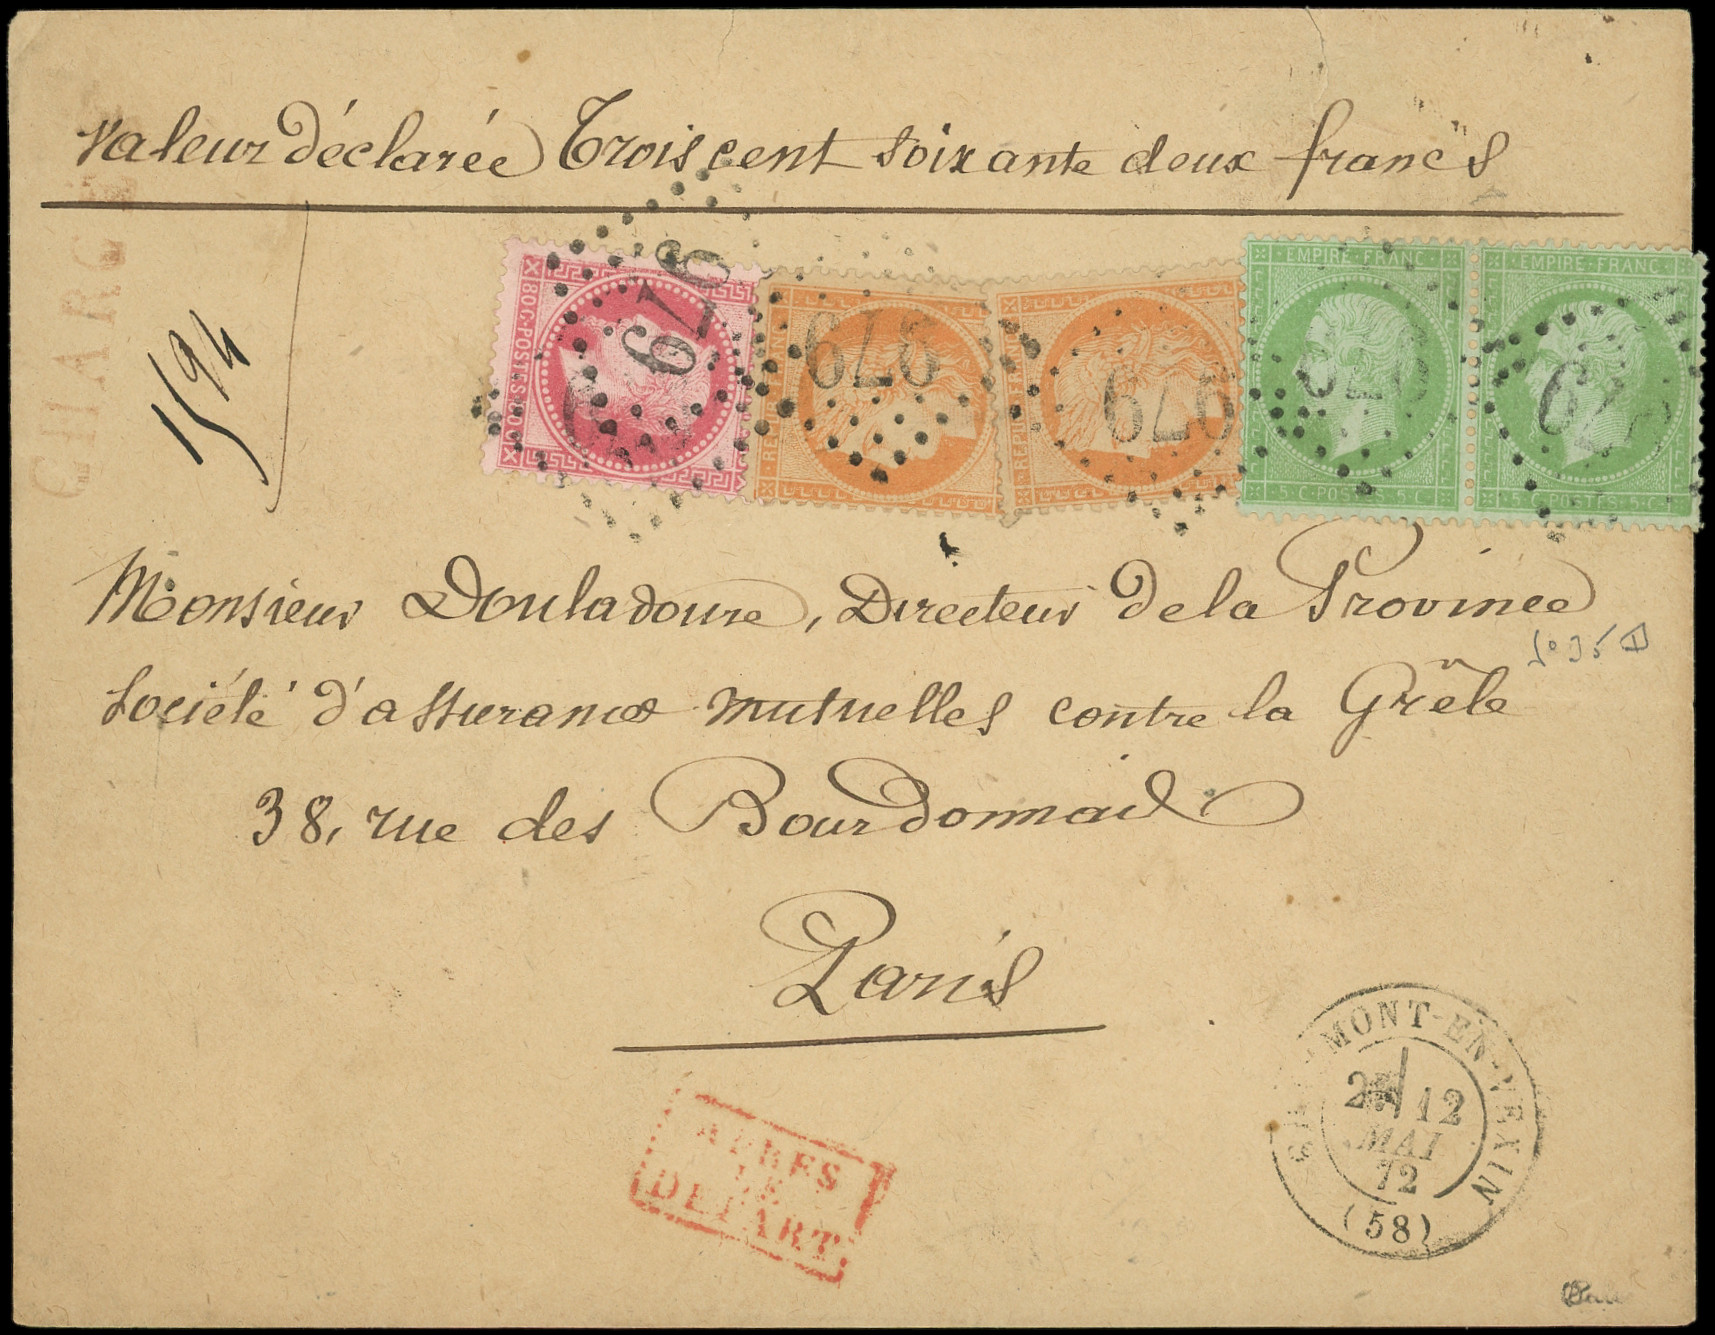 Valeur déclarée Trois cent soixante deux francs
CHARGÉ
1594
80 C POSTES 80 C
EMPIRE FRANC
5 C POSTES 5 C
EMPIRE FRANC
5 C POSTES 5 C
976
976
976
976
976
Monsieur Douladoure, Directeur de la Province
Société d'assurances mutuelles contre la Grêle
38, rue des Bourdonnais
Paris
APRES
LE
DEPART
CHAUMONT-EN-VEXIN
2E/12
MAI
72
(58)